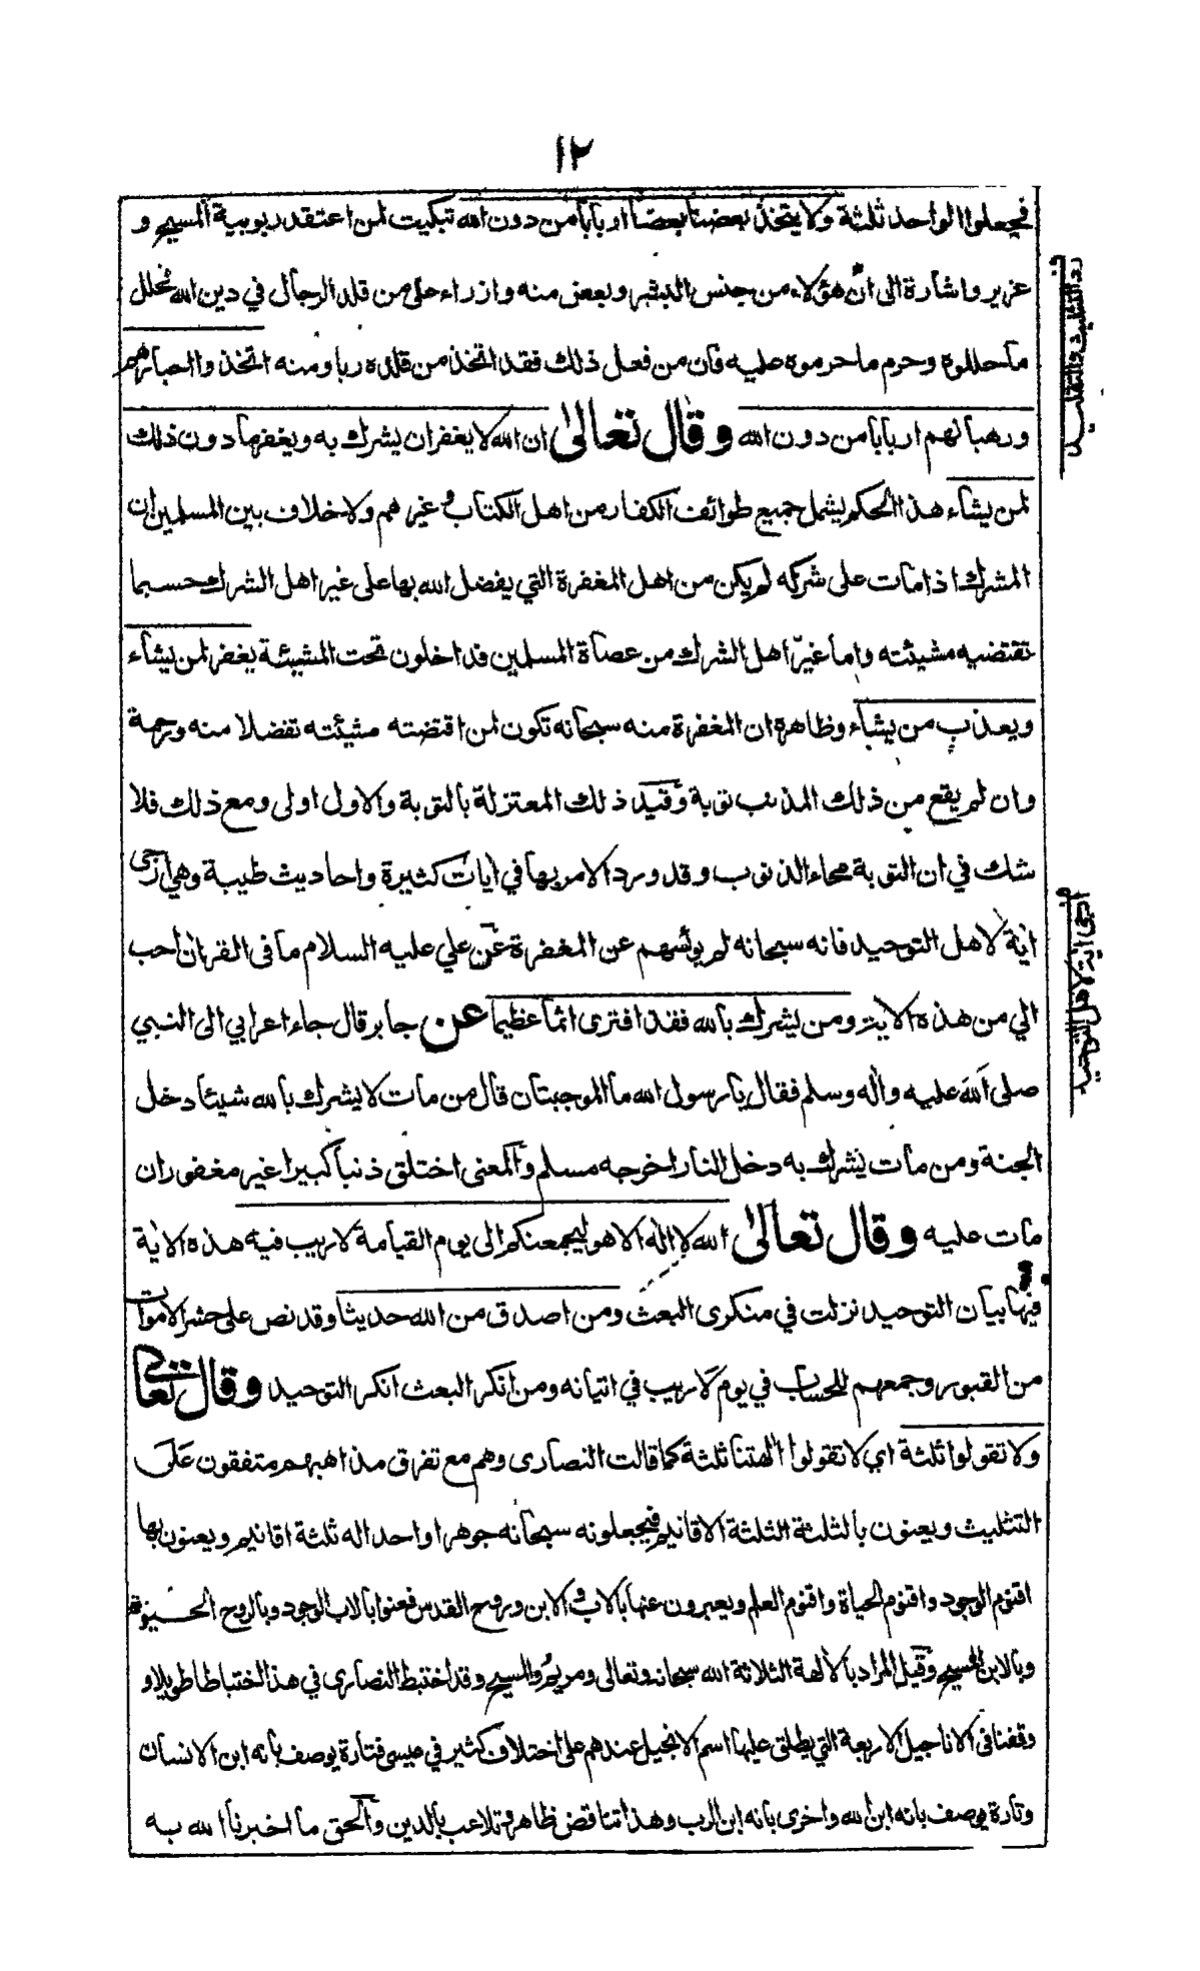 ١٢
فيجعلوا الواحد ثلثة ولا يتخذ بعضنا بعضا اربابا من دون الله تبكيت لمن اعتقد ربوبية المسيح و
عزير واشارة الى ان هؤلاء من جنس البشر وبعض منه وازراء على من قلد الرجال في دين الله فحلل
ما حللوه وحرم ما حرموه عليه فان من فعل ذلك فقد اتخذ من قلده ربا ومنه اتخذوا احبارهم
ورهبانهم اربابا من دون الله وقال تعالىٰ ان الله لا يغفر ان يشرك به ويغفر ما دون ذلك
لمن يشاء هذا الحكم يشمل جميع طوائف الكفار من اهل الكتاب وغيرهم ولا خلاف بين المسلمين ان
المشرك اذا مات على شركه لم يكن من اهل المغفرة التي يفضل الله بها على غير اهل الشرك حسبما
تقتضيه مشيئته واما غير اهل الشرك من عصاة المسلمين فداخلون تحت المشيئة يغفر لمن يشاء
ويعذب من يشاء وظاهره ان المغفرة منه سبحانه تكون لمن اقتضته مشيئته تفضلا منه ورحمة
وان لم يقع من ذلك المذنب توبة وقيد ذلك المعتزلة بالتوبة والاول اولى ومع ذلك فلا
شك في ان التوبة محاء الذنوب وقد ورد الامر بها في ايات كثيرة واحاديث طيبة وهي ارجى
اية لاهل التوحيد فانه سبحانه لم يوئسهم عن المغفرة عن علي عليه السلام ما فى القران احب
الي من هذه الاية ومن يشرك بالله فقد افترى اثما عظيما عن جابر قال جاء اعرابي الى النبي
صلى الله عليه واٰله وسلم فقال يا رسول الله ما الموجبتان قال من مات لا يشرك بالله شيئا دخل
الجنة ومن مات يشرك به دخل النار اخرجه مسلم والمعنى اختلق ذنبا كبيرا غير مغفور ان
مات عليه وقال تعالىٰ الله لا اله الا هو ليجمعنكم الى يوم القيامة لا ريب فيه هذه الاية
فيها بيان التوحيد نزلت في منكرى البعث ومن اصدق من الله حديثا وقد نص على حشر الاموات
من القبور وجمعهم للحساب في يوم لا ريب في اتيانه ومن انكر البعث انكر التوحيد وقال تعالى
ولا تقولوا ثلثة اي لا تقولوا الهتنا ثلثة كما قالت النصارى وهم مع تفرق مذاهبهم متفقون على
التثليث ويعنون بالثلثة الثلثة الاقانيم فيجعلونه سبحانه جوهرا واحدا له ثلثة اقانيم ويعنون بها
اقنوم الوجود واقنوم الحياة واقنوم العلم ويعبرون عنها بالاب والابن وروح القدس فعنوا بالاب الوجود وبالروح الحيوة
وبالابن المسيح وقيل المراد بالالهة الثلاثة الله سبحانه وتعالى ومريم والمسيح وقد اختبط النصارى في هذا اختباطا طويلا و
وقفنا فى الاناجيل الاربعة التي يطلق عليها اسم الانجيل عندهم على اختلاف كثير في عيسى فتارة يوصف بانه ابن الانسان
وتارة يوصف بانه ابن الله واخرى بانه ابن الرب وهذا تناقض ظاهر وتلاعب بالدين والحق ما اخبرنا الله به
رد التثليث والتقليد